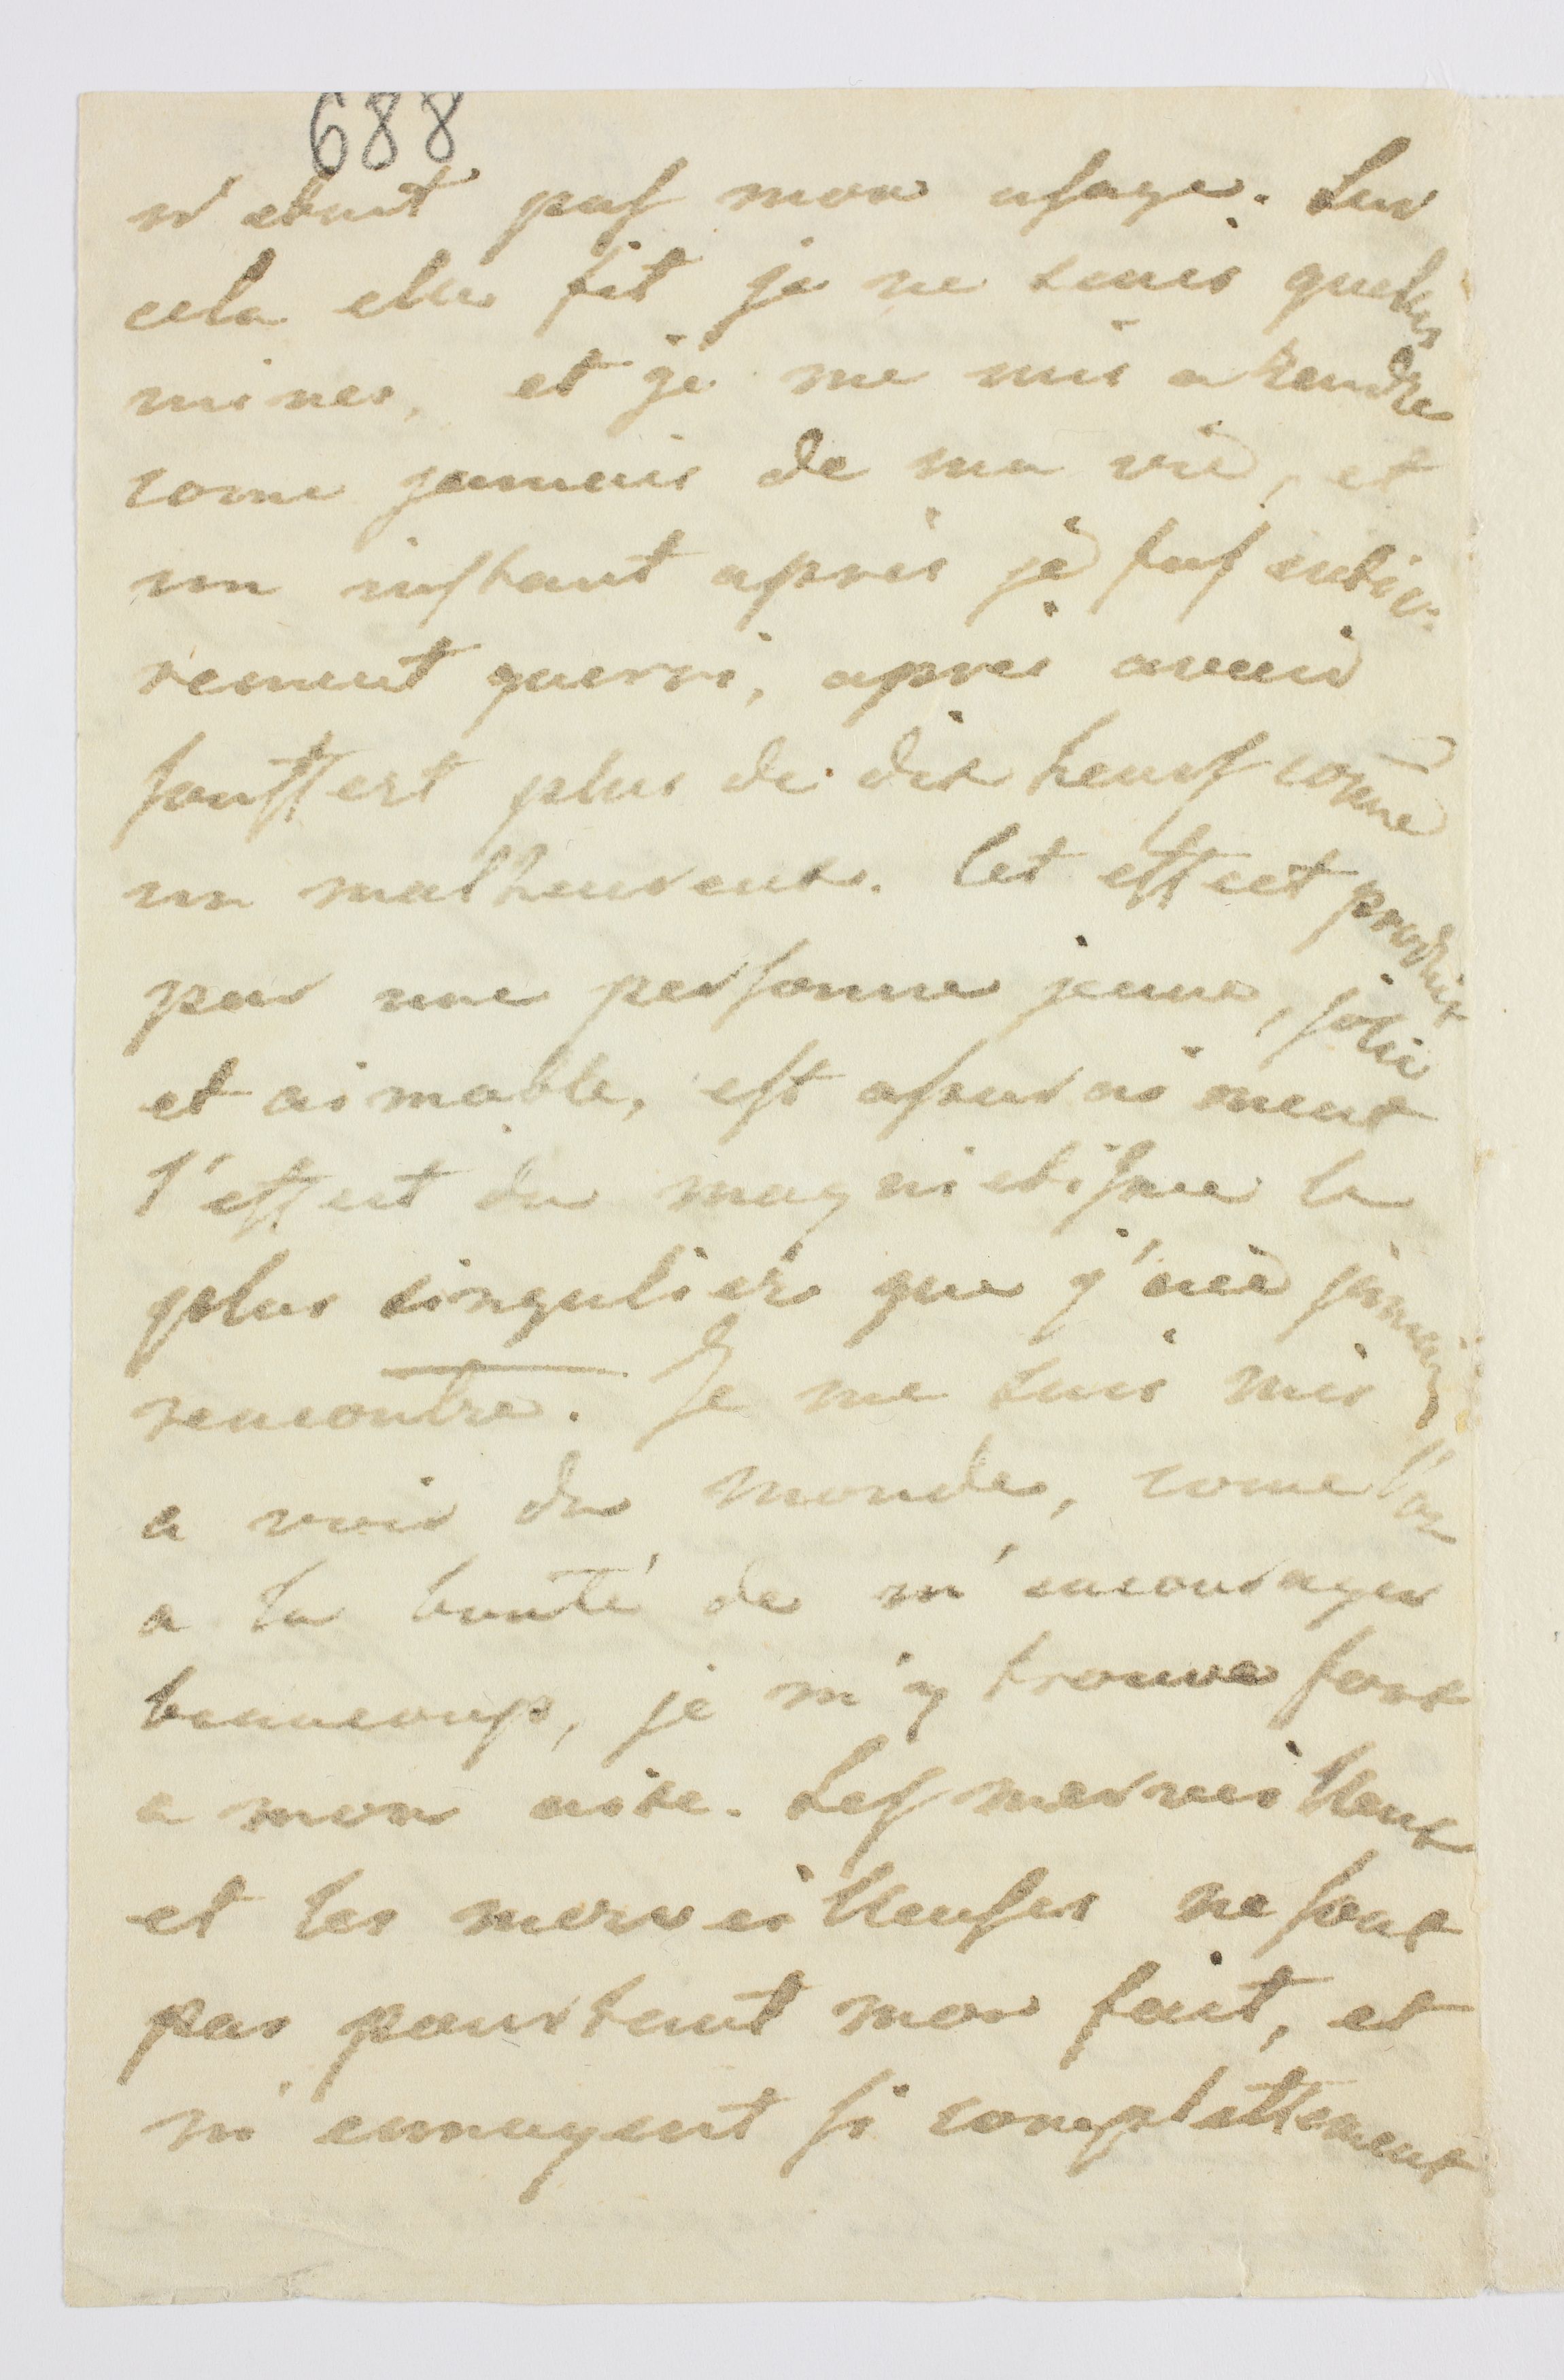 688
n'etant pas mon usage. Sur
cela elle fit je ne sais quelles
mines, et je me mis a rendre
come jamais de ma vie, et
un instant après je fus entie-
rement guerri, apres avoir
souffert plus de dix heures come
un malheureux. Cet effect produit
par une personne jeune, jolie
et aimable, est assurement
l'effect du magnietisme le
plus singulier que j'aie jamais
rencontre. Je me suis mis
a voir du monde, come l'on
a la bonté de m'encourager
beaucoup, je m'y trouve fort
a mon aise. Les merveilleux
et les merveilleuses ne sont
pas pourtant mon fait, et
m'ennuyent si complettement